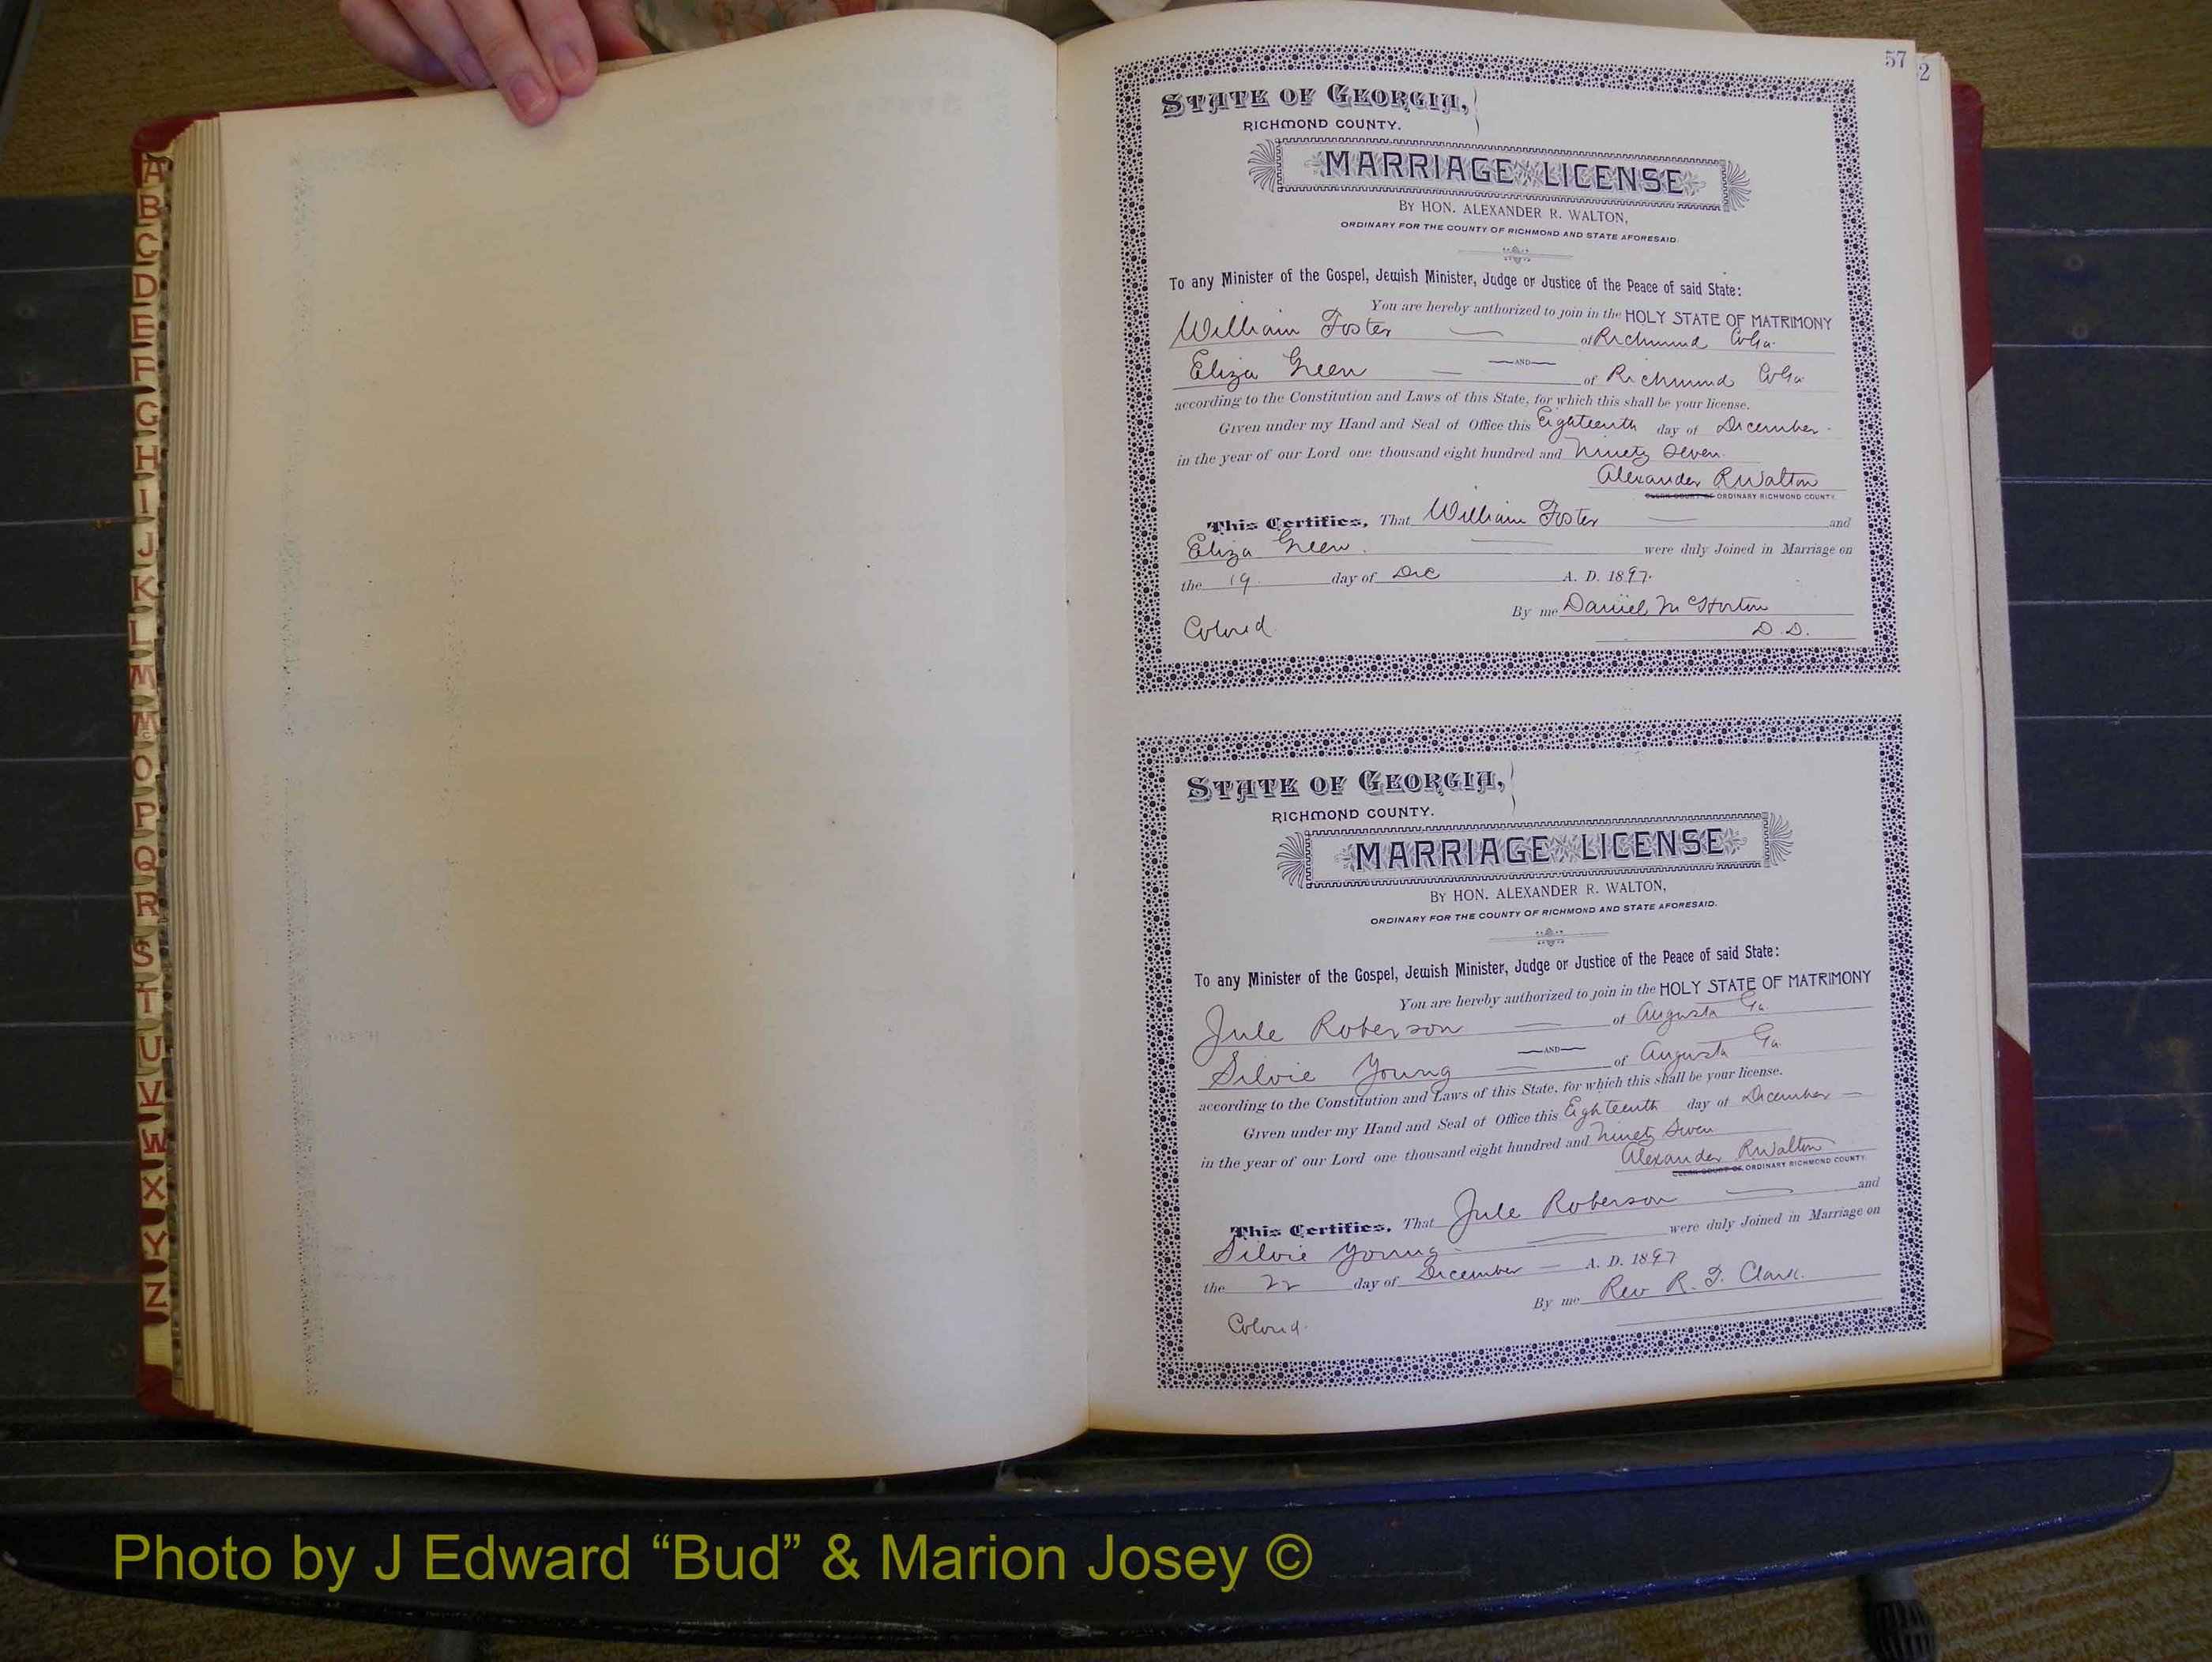 57
2
A
B
C
D
E
F
G
H
I
J
K
L
M
Mc
O
P
Q
R
S
T
U
V
W
X
Y
Z
STATE OF GEORGIA,
RICHMOND COUNTY.
MARRIAGE LICENSE
BY HON. ALEXANDER R. WALTON,
ORDINARY FOR THE COUNTY OF RICHMOND AND STATE AFORESAID.
To any Minister of the Gospel, Jewish Minister, Judge or Justice of the Peace of said State:
You are hereby authorized to join in the HOLY STATE OF MATRIMONY
William Foster of Richmond Co Ga.
AND
Eliza Green of Richmond Co Ga
according to the Constitution and Laws of this State, for which this shall be your license.
Given under my Hand and Seal of Office this Eighteenth day of December
in the year of our Lord one thousand eight hundred and Ninety Seven.
Alexander R Walton
CLERK COURT OF ORDINARY RICHMOND COUNTY.
This Certifies, That William Foster and
Eliza Green were duly Joined in Marriage on
the 19 day of Dec A. D. 1897.
By me Daniel Mc Horton
D. D.
Colored.
STATE OF GEORGIA,
RICHMOND COUNTY.
MARRIAGE LICENSE
BY HON. ALEXANDER R. WALTON,
ORDINARY FOR THE COUNTY OF RICHMOND AND STATE AFORESAID.
To any Minister of the Gospel, Jewish Minister, Judge or Justice of the Peace of said State:
You are hereby authorized to join in the HOLY STATE OF MATRIMONY
Jule Roberson of Augusta Ga.
AND
Silvie Young of Augusta Ga.
according to the Constitution and Laws of this State, for which this shall be your license.
Given under my Hand and Seal of Office this Eighteenth day of December
in the year of our Lord one thousand eight hundred and Ninety Seven
Alexander R Walton
CLERK COURT OF ORDINARY RICHMOND COUNTY.
This Certifies, That Jule Roberson and
Silvie Young were duly Joined in Marriage on
the 22 day of December A. D. 1897
By me Rev R. J. Clark.
Colored.
Photo by J Edward “Bud” & Marion Josey ©